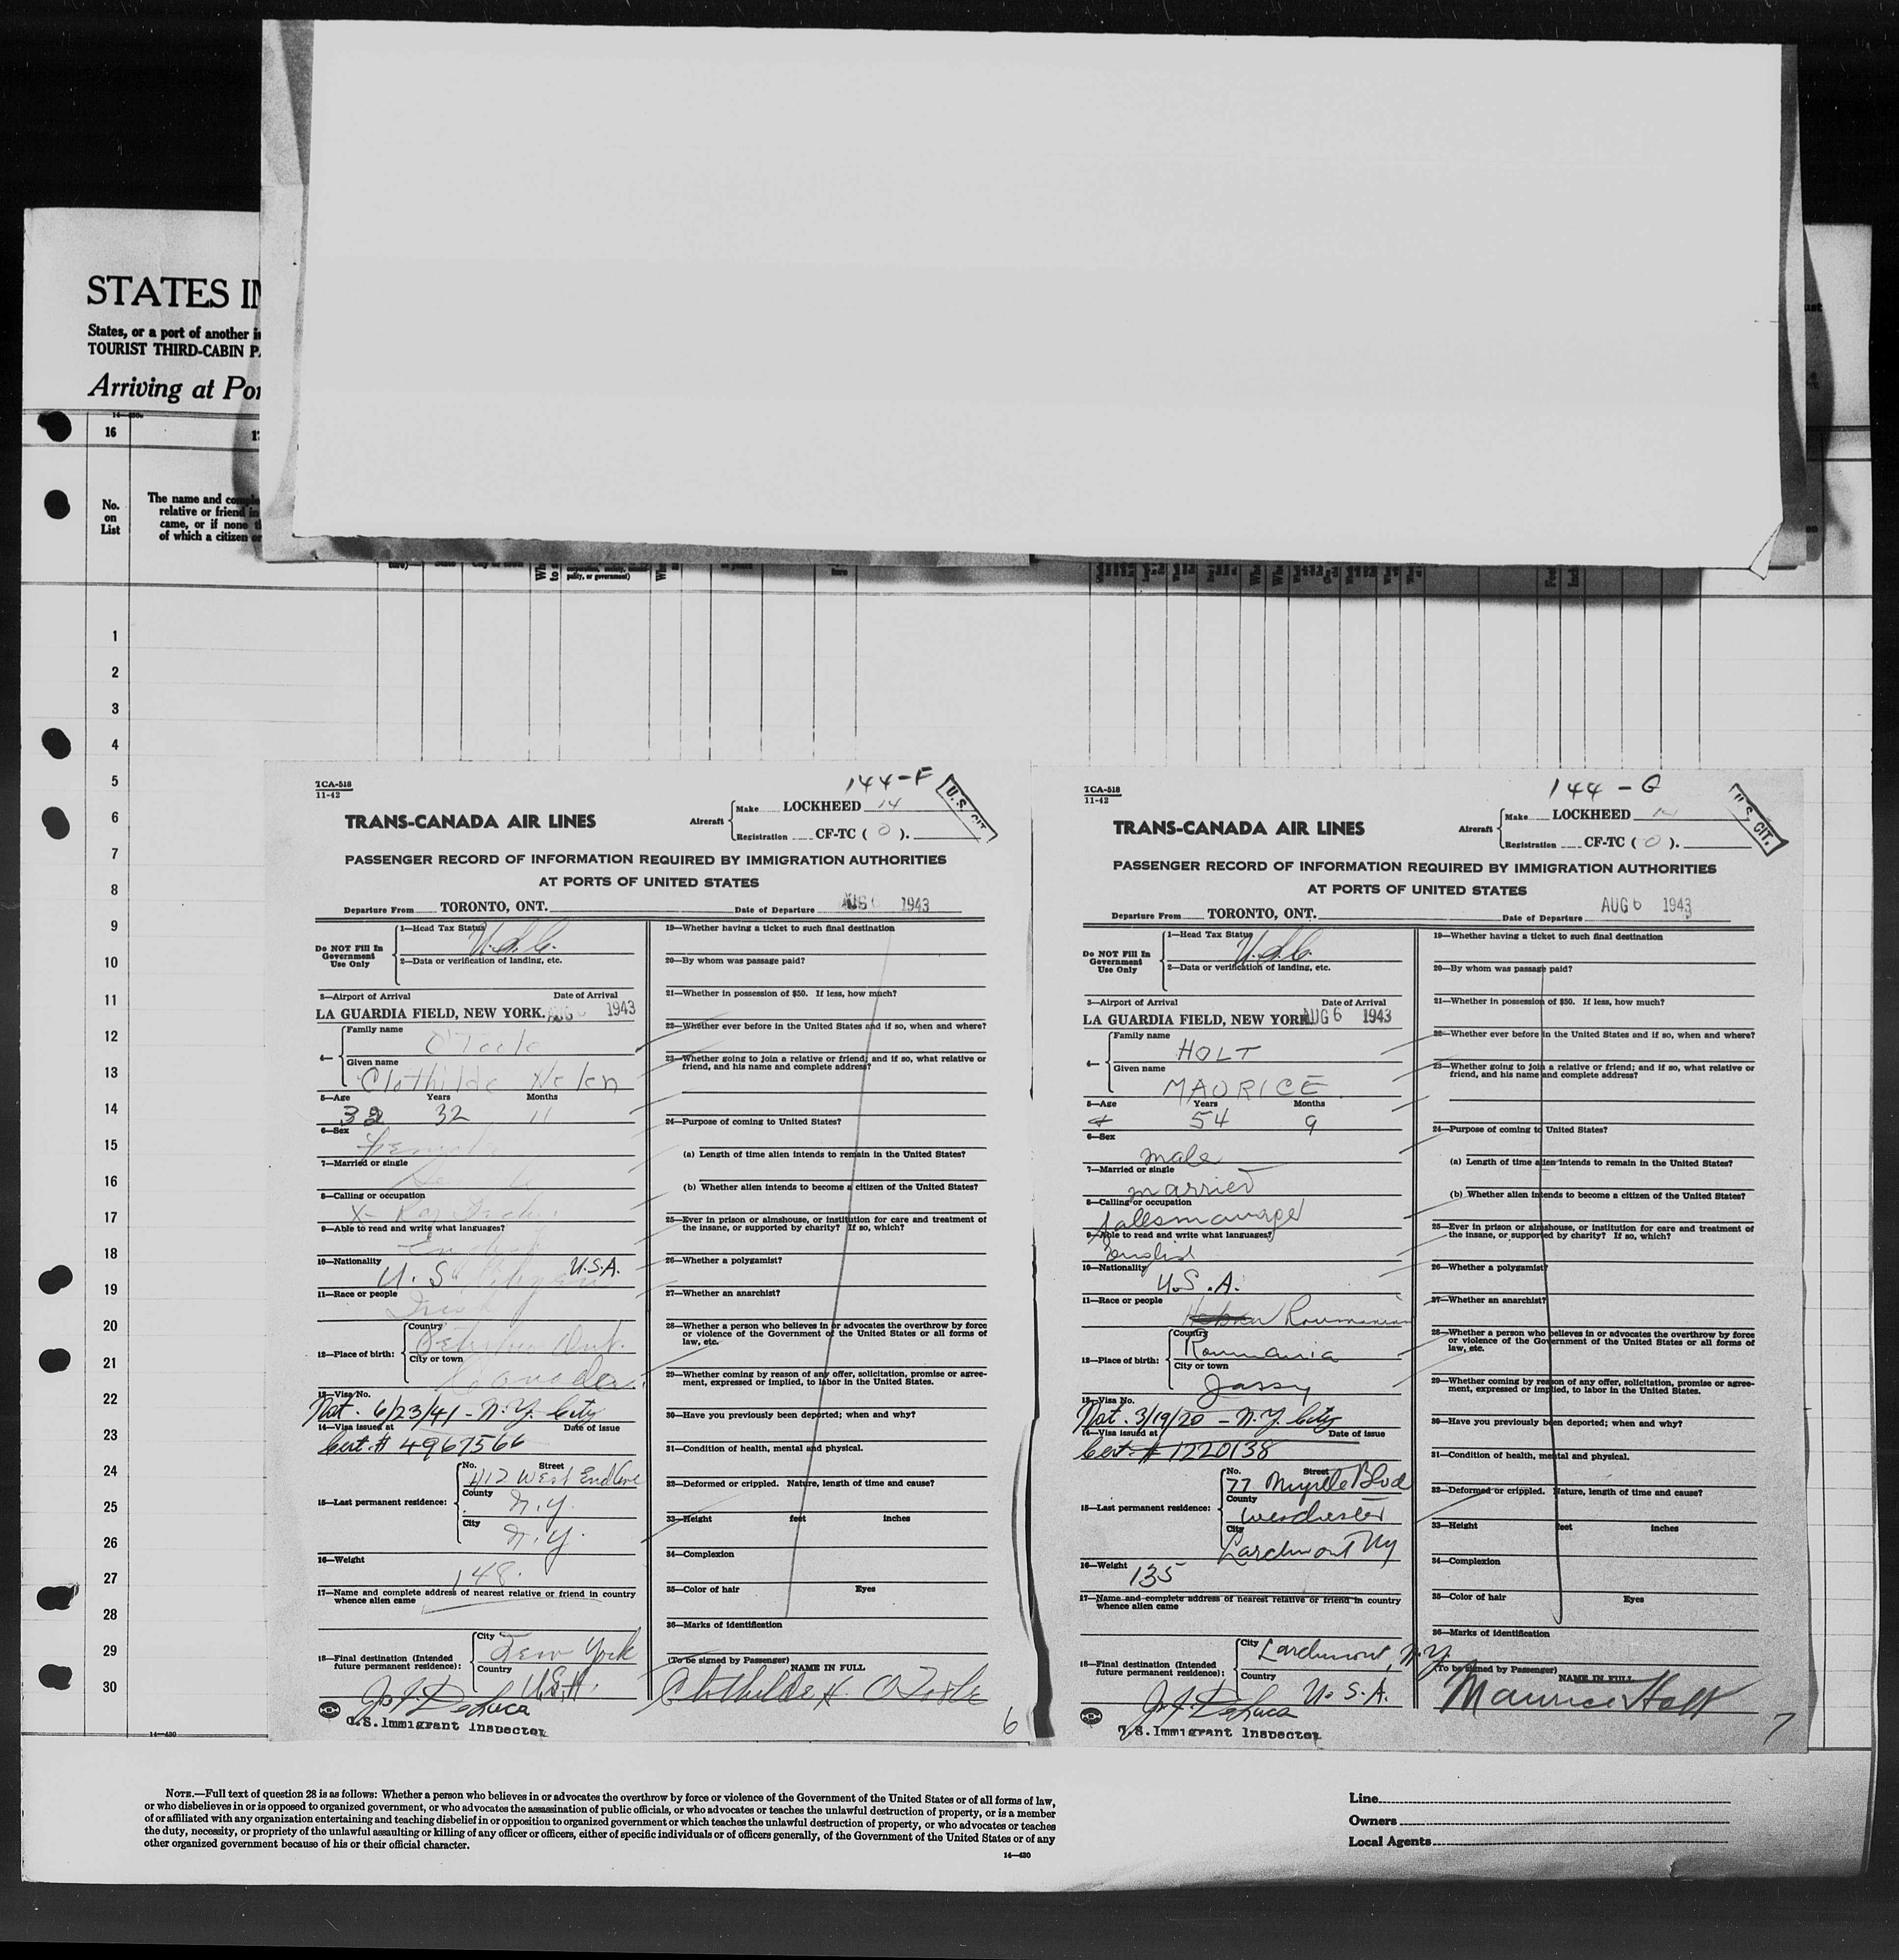 STATES IN
States, or a port of another i
TOURIST THIRD-CABIN P
Arriving at Por
16
No.
on
List
The name and comple
relative or friend in
came, or if none th
of which a citizen or
1
2
3
4
5
6
7
8
9
10
11
12
13
14
15
16
17
18
19
20
21
22
23
24
25
26
27
28
29
30
14—430
TCA-518
11-42
144-F
U.S. CIT.
TRANS-CANADA AIR LINES
Aircraft
Make LOCKHEED 14
Registration CF-TC ( O ).
PASSENGER RECORD OF INFORMATION REQUIRED BY IMMIGRATION AUTHORITIES
AT PORTS OF UNITED STATES
Departure From TORONTO, ONT. Date of Departure AUG 6 1943
Do NOT Fill In
Government
Use Only
1—Head Tax Status
U.S.C.
2—Data or verification of landing, etc.
3—Airport of Arrival Date of Arrival
LA GUARDIA FIELD, NEW YORK. AUG 6 1943
4—
Family name
O'Toole
Given name
Clothilde Helen
5—Age Years Months
32 32 11
6—Sex
Female
7—Married or single
8—Calling or occupation
X-Ray Techn.
9—Able to read and write what languages?
English
10—Nationality
U.S. Citizen U.S.A.
11—Race or people
Irish
12—Place of birth:
Country
Ont.
City or town
Canada
13—Visa No.
Nat. 6/23/41 - N.Y. City
14—Visa issued at Date of issue
Cert. # 4967566
15—Last permanent residence:
No. Street
412 West End Ave
County
N.Y.
City
N.Y.
16—Weight
148
17—Name and complete address of nearest relative or friend in country
whence alien came
18—Final destination (Intended
future permanent residence):
City
New York
Country
U.S.A.
J. J. DeLuca
U.S. Immigrant Inspector
19—Whether having a ticket to such final destination
20—By whom was passage paid?
21—Whether in possession of $50. If less, how much?
22—Whether ever before in the United States and if so, when and where?
23—Whether going to join a relative or friend; and if so, what relative or
friend, and his name and complete address?
24—Purpose of coming to United States?
(a) Length of time alien intends to remain in the United States?
(b) Whether alien intends to become a citizen of the United States?
25—Ever in prison or almshouse, or institution for care and treatment of
the insane, or supported by charity? If so, which?
26—Whether a polygamist?
27—Whether an anarchist?
28—Whether a person who believes in or advocates the overthrow by force
or violence of the Government of the United States or all forms of
law, etc.
29—Whether coming by reason of any offer, solicitation, promise or agree-
ment, expressed or implied, to labor in the United States.
30—Have you previously been deported; when and why?
31—Condition of health, mental and physical.
32—Deformed or crippled. Nature, length of time and cause?
33—Height feet inches
34—Complexion
35—Color of hair Eyes
36—Marks of identification
(To be signed by Passenger)
NAME IN FULL
Clothilde H. O'Toole
6
TCA-518
11-42
144-G
U.S. CIT.
TRANS-CANADA AIR LINES
Aircraft
Make LOCKHEED 14
Registration CF-TC ( O ).
PASSENGER RECORD OF INFORMATION REQUIRED BY IMMIGRATION AUTHORITIES
AT PORTS OF UNITED STATES
Departure From TORONTO, ONT. Date of Departure AUG 6 1943
Do NOT Fill In
Government
Use Only
1—Head Tax Status
U.S.C.
2—Data or verification of landing, etc.
3—Airport of Arrival Date of Arrival
LA GUARDIA FIELD, NEW YORK. AUG 6 1943
4—
Family name
HOLT
Given name
MAURICE
5—Age Years Months
54 9
6—Sex
male
7—Married or single
married
8—Calling or occupation
salesmanager
9—Able to read and write what languages?
English
10—Nationality
U.S.A.
11—Race or people
Hebrew Roumanian
12—Place of birth:
Country
Roumania
City or town
Jassy
13—Visa No.
Nat. 3/19/20 - N.Y. City
14—Visa issued at Date of issue
Cert. # 1220138
15—Last permanent residence:
No. Street
77 Myrtle Blvd
County
Westchester
City
Larchmont NY
16—Weight
135
17—Name and complete address of nearest relative or friend in country
whence alien came
18—Final destination (Intended
future permanent residence):
City
Larchmont, N.Y.
Country
U.S.A.
J. J. DeLuca
U.S. Immigrant Inspector
19—Whether having a ticket to such final destination
20—By whom was passage paid?
21—Whether in possession of $50. If less, how much?
22—Whether ever before in the United States and if so, when and where?
23—Whether going to join a relative or friend; and if so, what relative or
friend, and his name and complete address?
24—Purpose of coming to United States?
(a) Length of time alien intends to remain in the United States?
(b) Whether alien intends to become a citizen of the United States?
25—Ever in prison or almshouse, or institution for care and treatment of
the insane, or supported by charity? If so, which?
26—Whether a polygamist?
27—Whether an anarchist?
28—Whether a person who believes in or advocates the overthrow by force
or violence of the Government of the United States or all forms of
law, etc.
29—Whether coming by reason of any offer, solicitation, promise or agree-
ment, expressed or implied, to labor in the United States.
30—Have you previously been deported; when and why?
31—Condition of health, mental and physical.
32—Deformed or crippled. Nature, length of time and cause?
33—Height feet inches
34—Complexion
35—Color of hair Eyes
36—Marks of identification
(To be signed by Passenger)
NAME IN FULL
Maurice Holt
7
NOTE.—Full text of question 28 is as follows: Whether a person who believes in or advocates the overthrow by force or violence of the Government of the United States or of all forms of law,
or who disbelieves in or is opposed to organized government, or who advocates the assassination of public officials, or who advocates or teaches the unlawful destruction of property, or is a member
of or affiliated with any organization entertaining and teaching disbelief in or opposition to organized government or which teaches the unlawful destruction of property, or who advocates or teaches
the duty, necessity, or propriety of the unlawful assaulting or killing of any officer or officers, either of specific individuals or of officers generally, of the Government of the United States or of any
other organized government because of his or their official character.
14—430
Line
Owners
Local Agents